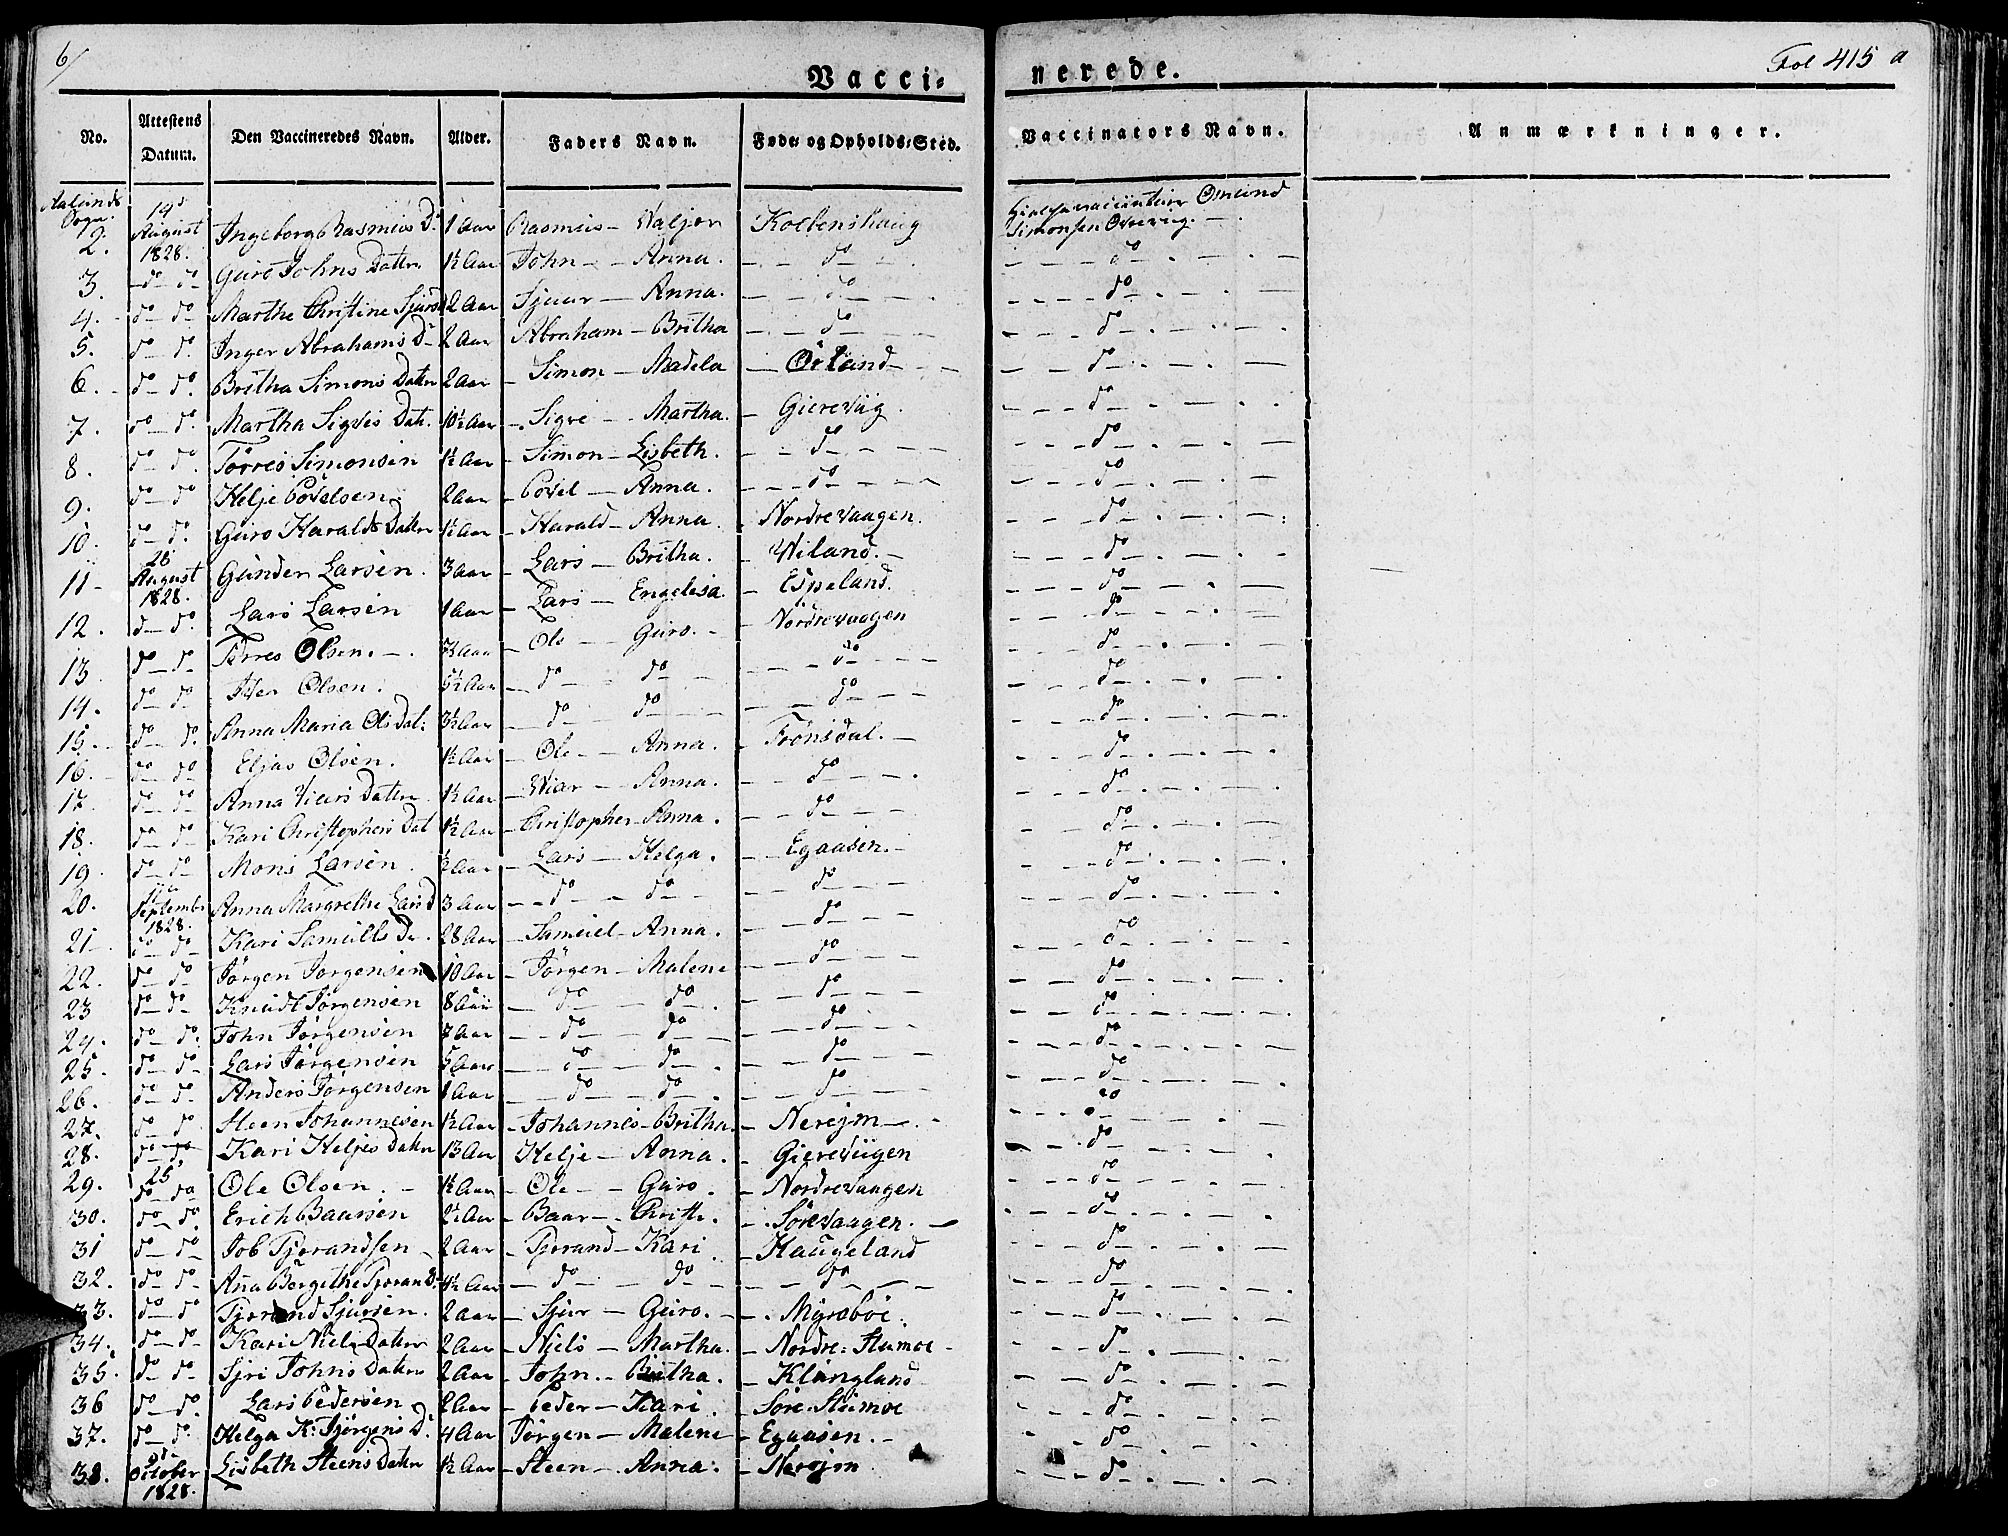 6/
Vacci- nerede.
Fol 415 a
No. Attestens Datum. Den Vaccineredes Navn. Alder. Faders Navn. Føde- og Opholds-Sted. Vaccinators Navn. Anmærkninger.
Sogn.
2. 19de August 1828. Ingeborg Rasmus D. 1 Aar Rasmus - Valjer Kolbenshaug Omund Simonsen
3. do do Guro Johns Datter 1½ Aar John - Anna. do do
4. do do Marthe Christine Sjurs 2 Aar Sjuur - Anna. do do
5. do do Inger Abrahams D 2 Aar Abraham - Britha do do
6. do do Britha Simons Datter 2 Aar Simon - Madela Østand do
7. do do Martha Sigvis Datt. 10½ Aar Sigvi - Martha. Gierevüg. do
8. do do Törres Simonsen 1½ Aar Simon - Lisbeth. do do
9. do do Helje Povelsen 2 Aar Povel - Anna. do do
10. do do Guro Haralds Datter 1½ Aar Harald - Anna. Nordrevaagen. do
11 28 August 1828. Gunder Larsen. 3 Aar Lars - Britha. Wiland. do
Lars Larsen 1 Aar Lars - Engelisa. Espeland. do
12. do do Törres Olsen. 7½ Aar Ole - Guro. Nordrevaagen do
13. do do Iver Olsen. 5½ Aar do do do do
14. do do Anna Maria Ols Dat. 3½ Aar do do do do
15. do do Eljas Olsen. 1½ Aar Ole - Anna. Frönsdal. do
16. do do Anna Viars Datter 1½ Aar Wiar - Anna. do do
17. do do Kari Christophers Dat 1½ Aar Christopher - Anna. do do
18. do do Mons Larsen. ½ Aar Lars - Helga. Egaasen. do
19. do do
20. September 1828. Anna Margrethe Lars D 3 Aar do do do do
21 do do Kari Samuels D. 28 Aar Samuel - Anna. do do
22. do do Jörgen Jörgensen 10 Aar Jörgen - Malene do do
23 do do Knudt Jörgensen 8 Aar do do do do
24. do do John Jörgensen 7 Aar do do do do
25. do do Lars Jörgensen 5 Aar do do do do
26. do do Anders Jörgensen 1 Aar do do do do
27. do do Steen Johannesen 1½ Aar Johannes - Britha. Nerejm do
28. do do Kari Heljes Datter 13 Aar Helje - Anna. Gierevügen do
29. 25 do do Ole Olsen. 1½ Aar Ole - Guro. Nordrevaagen do
30. do do Erich Baarsen 2½ Aar Baar - Christi. Sörevaagen. do
31 do do Job Tjorandsen 2 Aar Tjorand - Kari Haugeland do
32. do do Ana Börgethe Tjorand D 4½ Aar do do do do
33. do do Tjorand Sjursen. 2 Aar Sjur - Guro. Myreböe. do
34. do do Kari Niels Datter 2 Aar Niels - Martha. Nordre: Stumoe do
35. do do Sjri Johns Datter 2 Aar John - Britha. Klüngland do
36 do do Lars Pedersen 2 Aar Peder - Kari. Söre Stumoe do
37. do do Helga K: Jörgens D. 4 Aar Jörgen - Malene Egaasen. do
38. October 1828. Lisbeth Steens Datter 1½ Aar Steen - Anna. Nerejm do